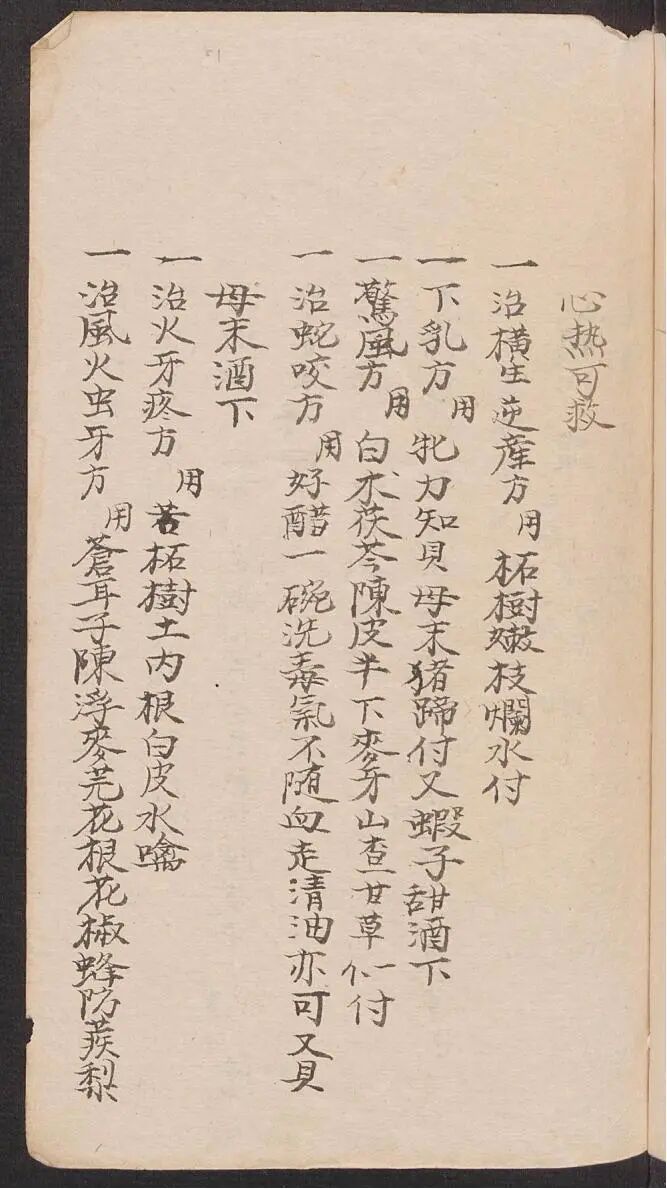 心热可救
一治橫生逆產方用柘樹嫩枝爛水付
一下乳方用牝力知貝母末猪蹄付又蝦子甜酒下
一驚風方用白朮茯苓陳皮半下麥牙山查甘草仁一付
一治蛇咬方用好醋一碗洗毒氣不随血走清油亦可又貝
母末酒下
一治火牙疼方用苦柘樹土內根白皮水噙
一治風火虫牙方用蒼耳子陳浮麥芫花根花椒蜂防蒺梨